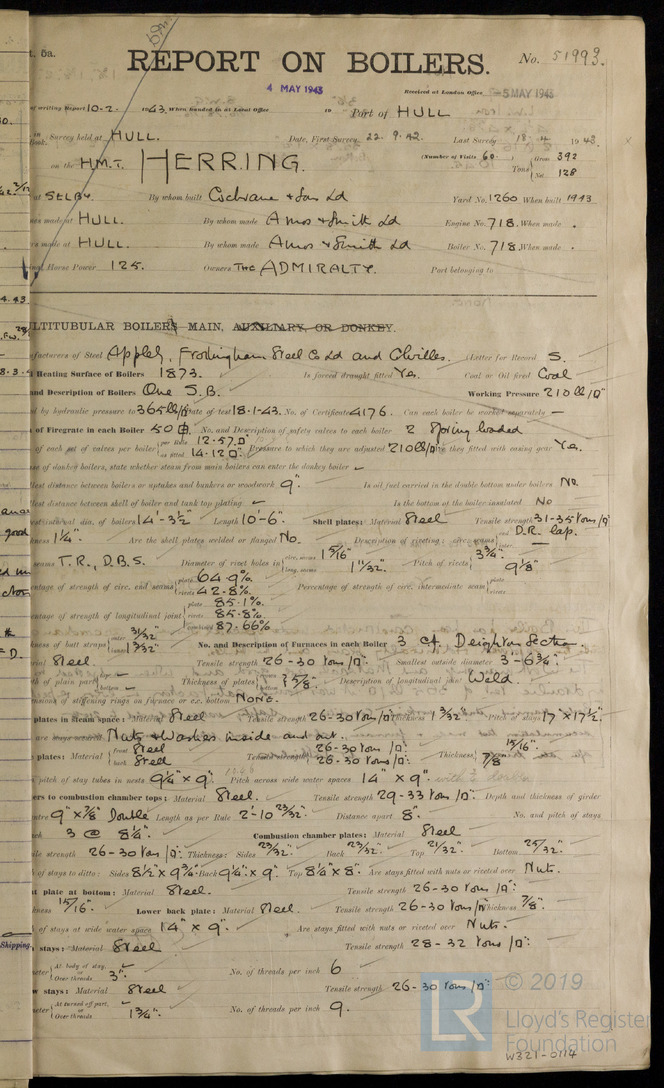 t. 5a.
REPORT ON BOILERS.
No. 51993.
4 MAY 1943
Received at London Office -5 MAY 1943
of writing Report 10-2- 1943. When handed in at Local Office
in Port of HULL
Survey held at HULL. Date, First Survey 22.9.42. Last Survey 18-4- 1943.
on the H.M.T. HERRING. (Number of Visits 60.) Tons Gross 392 Net 128
at SELBY. By whom built Cochrane & Son Ld Yard No. 1260 When built 1943
s made at HULL. By whom made Amos & Smith Ld Engine No. 718. When made .
s made at HULL. By whom made Amos & Smith Ld Boiler No. 718. When made .
Horse Power 125. Owners THE ADMIRALTY. Port belonging to
LTITUBULAR BOILERS MAIN, AUXILIARY, OR DONKEY.
facturers of Steel Appleby, Frodingham Steel Co Ld and Colvilles. (Letter for Record S.
Heating Surface of Boilers 1873. Is forced draught fitted Yes. Coal or Oil fired Coal
and Description of Boilers One S.B. Working Pressure 210 lb/□"
by hydraulic pressure to 365 lb/□" Date of test 18-1-43. No. of Certificate 4176. Can each boiler be worked separately —
of Firegrate in each Boiler 50 No. and Description of safety valves to each boiler 2 Spring loaded
of each set of valves per boiler per Rule 12.57 □" as fitted 14.12 □" Pressure to which they are adjusted 210 lb/□" they fitted with easing gear Yes.
se of donkey boilers, state whether steam from main boilers can enter the donkey boiler
lest distance between boilers or uptakes and bunkers or woodwork 9". Is oil fuel carried in the double bottom under boilers No.
lest distance between shell of boiler and tank top plating In the bottom of the boiler insulated No
internal dia. of boilers 14'-3½" Length 10'-6". Shell plates: Material Steel Tensile strength 31-35 Tons/□"
kness 1¼". Are the shell plates welded or flanged No. Description of riveting: circ. seams D.R. lap.
seams T.R., D.B.S. Diameter of rivet holes in circ. seams 1 5/16" long. seams 1 11/32". Pitch of rivets 3¾" 9⅛"
entage of strength of circ. end seams plate 64.9% rivets 42.8% Percentage of strength of circ. intermediate seam plate rivets
entage of strength of longitudinal joint plate 85.1% rivets 85.8% combined 87.66%
kness of butt straps outer 31/32" inner 1 3/32" No. and Description of Furnaces in each Boiler 3 Cf. Deighton Section.
ial Steel Tensile strength 26-30 Tons/□". Smallest outside diameter 3'-6¾".
th of plain part top bottom Thickness of plates 5/8" Description of longitudinal joint Weld.
nsions of stiffening rings on furnace or c.c. bottom NONE.
plates in steam space: Material Steel Tensile strength 26-30 Tons/□" Thickness 1 3/32" Pitch of stays 17"×17½".
are stays secured Nuts & Washers inside and out.
plates: Material front Steel back Steel Tensile strength 26-30 Tons/□". 26-30 Tons/□". Thickness 15/16". 7/8"
pitch of stay tubes in nests 9¼" × 9". Pitch across wide water spaces 14" × 9".
ers to combustion chamber tops: Material Steel. Tensile strength 29-33 Tons/□". Depth and thickness of girder
ntre 9"×⅞" Double Length as per Rule 2'-10 23/32". Distance apart 8". No. and pitch of stays
ch 3 @ 8¼". Combustion chamber plates: Material Steel
ile strength 26-30 Tons/□". Thickness: Sides 23/32". Back 23/32". Top 21/32". Bottom 25/32".
of stays to ditto: Sides 8½"×9¾" Back 9¼"×9". Top 8¼"×8". Are stays fitted with nuts or riveted over Nuts.
t plate at bottom: Material Steel. Tensile strength 26-30 Tons/□".
kness 15/16". Lower back plate: Material Steel. Tensile strength 26-30 Tons/□" Thickness 7/8".
of stays at wide water space 14" × 9". Are stays fitted with nuts or riveted over Nuts.
stays: Material Steel Tensile strength 28-32 Tons/□".
meter At body of stay, or Over threads 3". No. of threads per inch 6
w stays: Material Steel Tensile strength 26-30 Tons/□".
meter At turned off part, or Over threads 1¾". No. of threads per inch 9.
LR © 2019
Lloyd's Register
Foundation
W321-0114